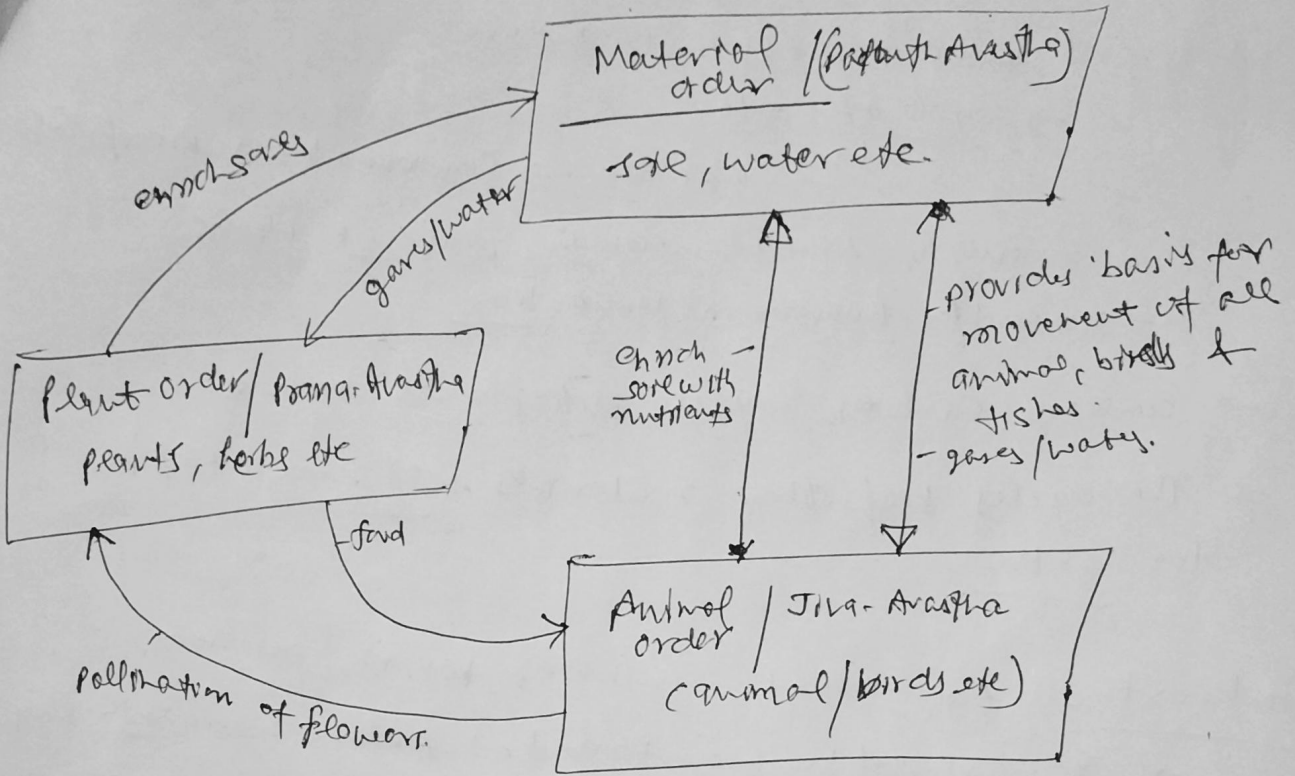 Material / (Padarth Avastha)
order
soil, water etc.
enrich soils
gases/water
Plant order / Prana-Avastha
plants, herbs etc
enrich
soil with
nutrients
- provides basis for
movement of all
animal, birds &
fishes.
- gases/water.
food
Animal / Jiva-Avastha
order
(animal/birds etc)
pollination of flowers.